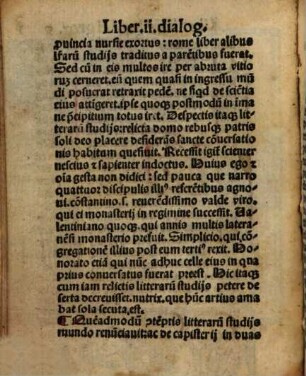 Liber.ii.dialog.
puincia nursie exortus: rome liber alibus
lr̃arũ studijs traditus a parẽtibus fuerat.
Sed cũ in eis multos ire per abruta vitio
rũ cerneret. eũ quem quasi in ingressu mũ
di posuerat retraxit pedẽ. ne siqd de sciẽtia
eius attigeret. ipse quoqʒ postmodũ in ima
ne p̃cipitium totus iret. Despectis itaqʒ litt
terarũ studijs: relicta domo rebusqʒ patris
soli deo placere desiderãs sancte cõuersatio
nis habitum quesiuit. Recessit igit̃ scienter
nescius ⁊ sapienter indoctus. Huius ego õ
ĩa gesta non didici: sed pauca que narro
quattuor discipulis illiꝰ referẽtibus agno
ui. cõstantino. s. reuerẽdissimo valde viro.
qui ei monasterij in regimine successit. Va
lentiniano quoqʒ. qui annis multis latera
nẽsi monasterio prefuit. Simplicio. qui cõ
gregationẽ illius post eum tertiꝰ rexit. Ho
norato etiã qui nũc adhuc celle eius in qua
prius conuersatus fuerat preest. Hic itaqʒ
cum iam relictis litterarũ studijs petere de
serta decreuisset. nutrix. que hũc artius ama
bat sola secuta. est.
¶ Quẽadmodũ ↄtẽptis litterarũ studijs
mundo renũciauit: ac de capisterij in duas